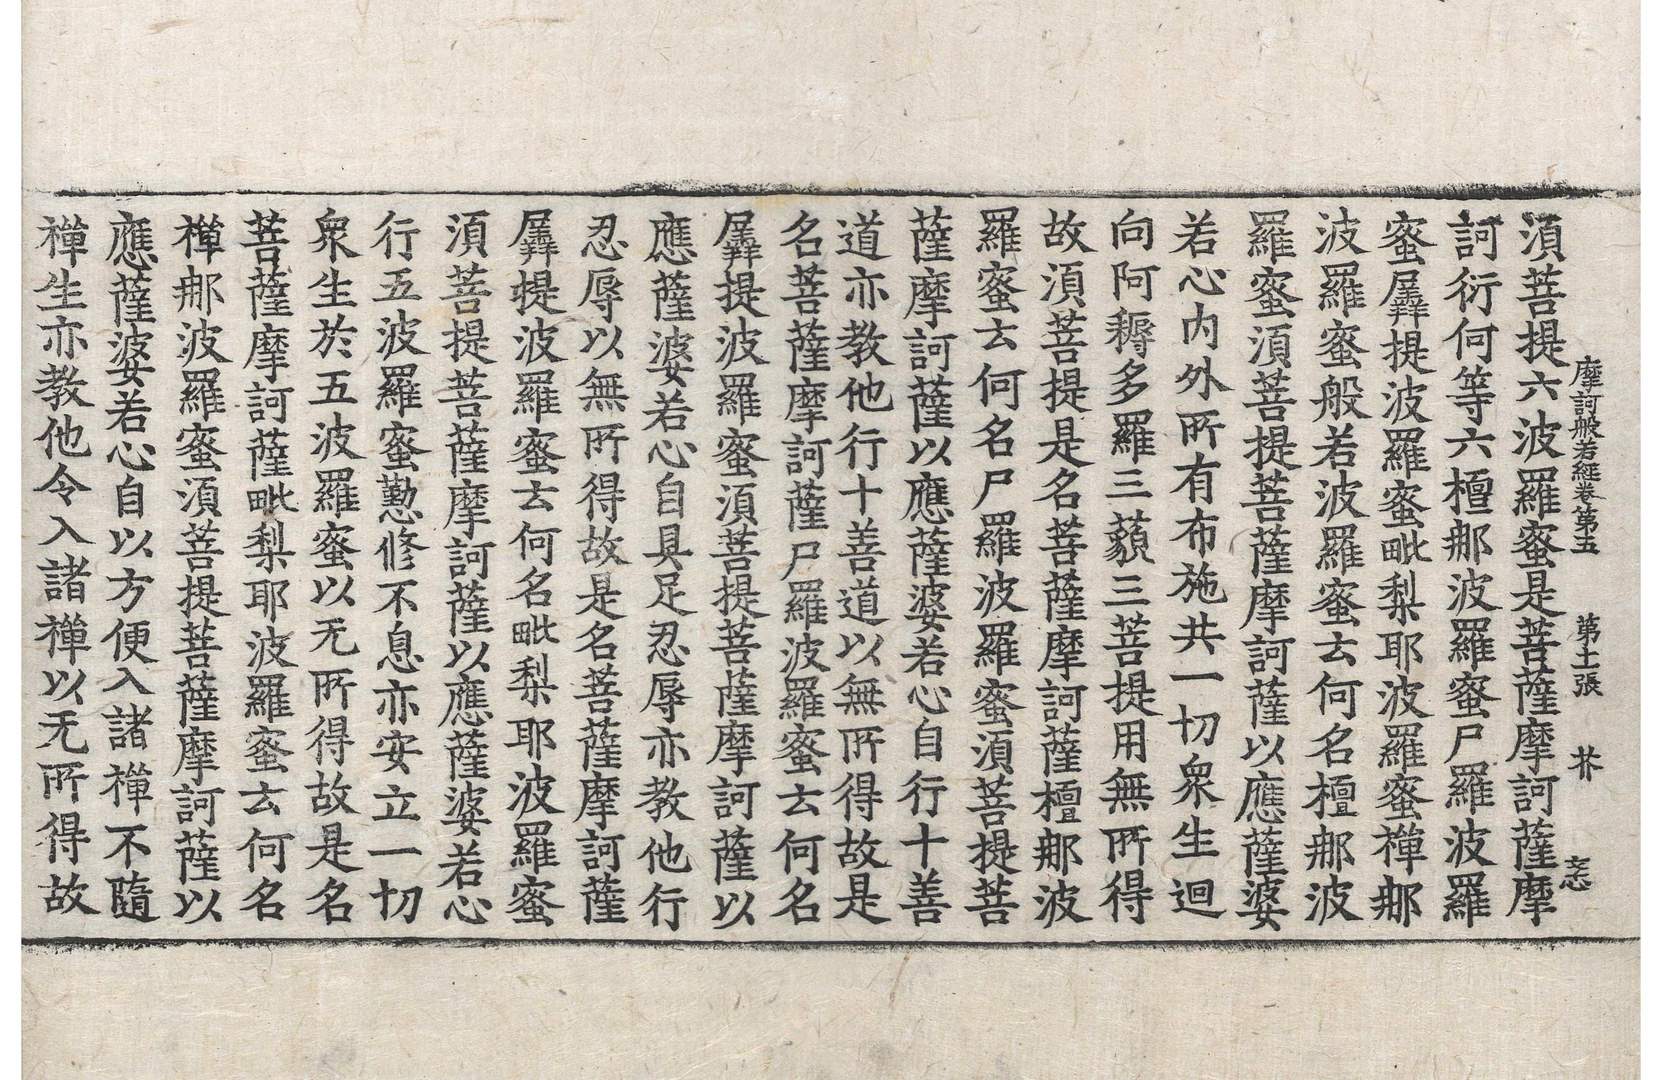 摩訶般若經卷第五　第十一張　芥　文忠
須菩提六波羅蜜是菩薩摩訶薩摩
訶衍何等六檀那波羅蜜尸羅波羅
蜜羼提波羅蜜毗梨耶波羅蜜禪那
波羅蜜般若波羅蜜云何名檀那波
羅蜜須菩提菩薩摩訶薩以應薩婆
若心內外所有布施共一切衆生迴
向阿耨多羅三藐三菩提用無所得
故須菩提是名菩薩摩訶薩檀那波
羅蜜云何名尸羅波羅蜜須菩提菩
薩摩訶薩以應薩婆若心自行十善
道亦教他行十善道以無所得故是
名菩薩摩訶薩尸羅波羅蜜云何名
羼提波羅蜜須菩提菩薩摩訶薩以
應薩婆若心自具足忍辱亦教他行
忍辱以無所得故是名菩薩摩訶薩
羼提波羅蜜云何名毗梨耶波羅蜜
須菩提菩薩摩訶薩以應薩婆若心
行五波羅蜜懃修不息亦安立一切
衆生於五波羅蜜以无所得故是名
菩薩摩訶薩毗梨耶波羅蜜云何名
禪那波羅蜜須菩提菩薩摩訶薩以
應薩婆若心自以方便入諸禪不隨
禪生亦教他令入諸禪以无所得故